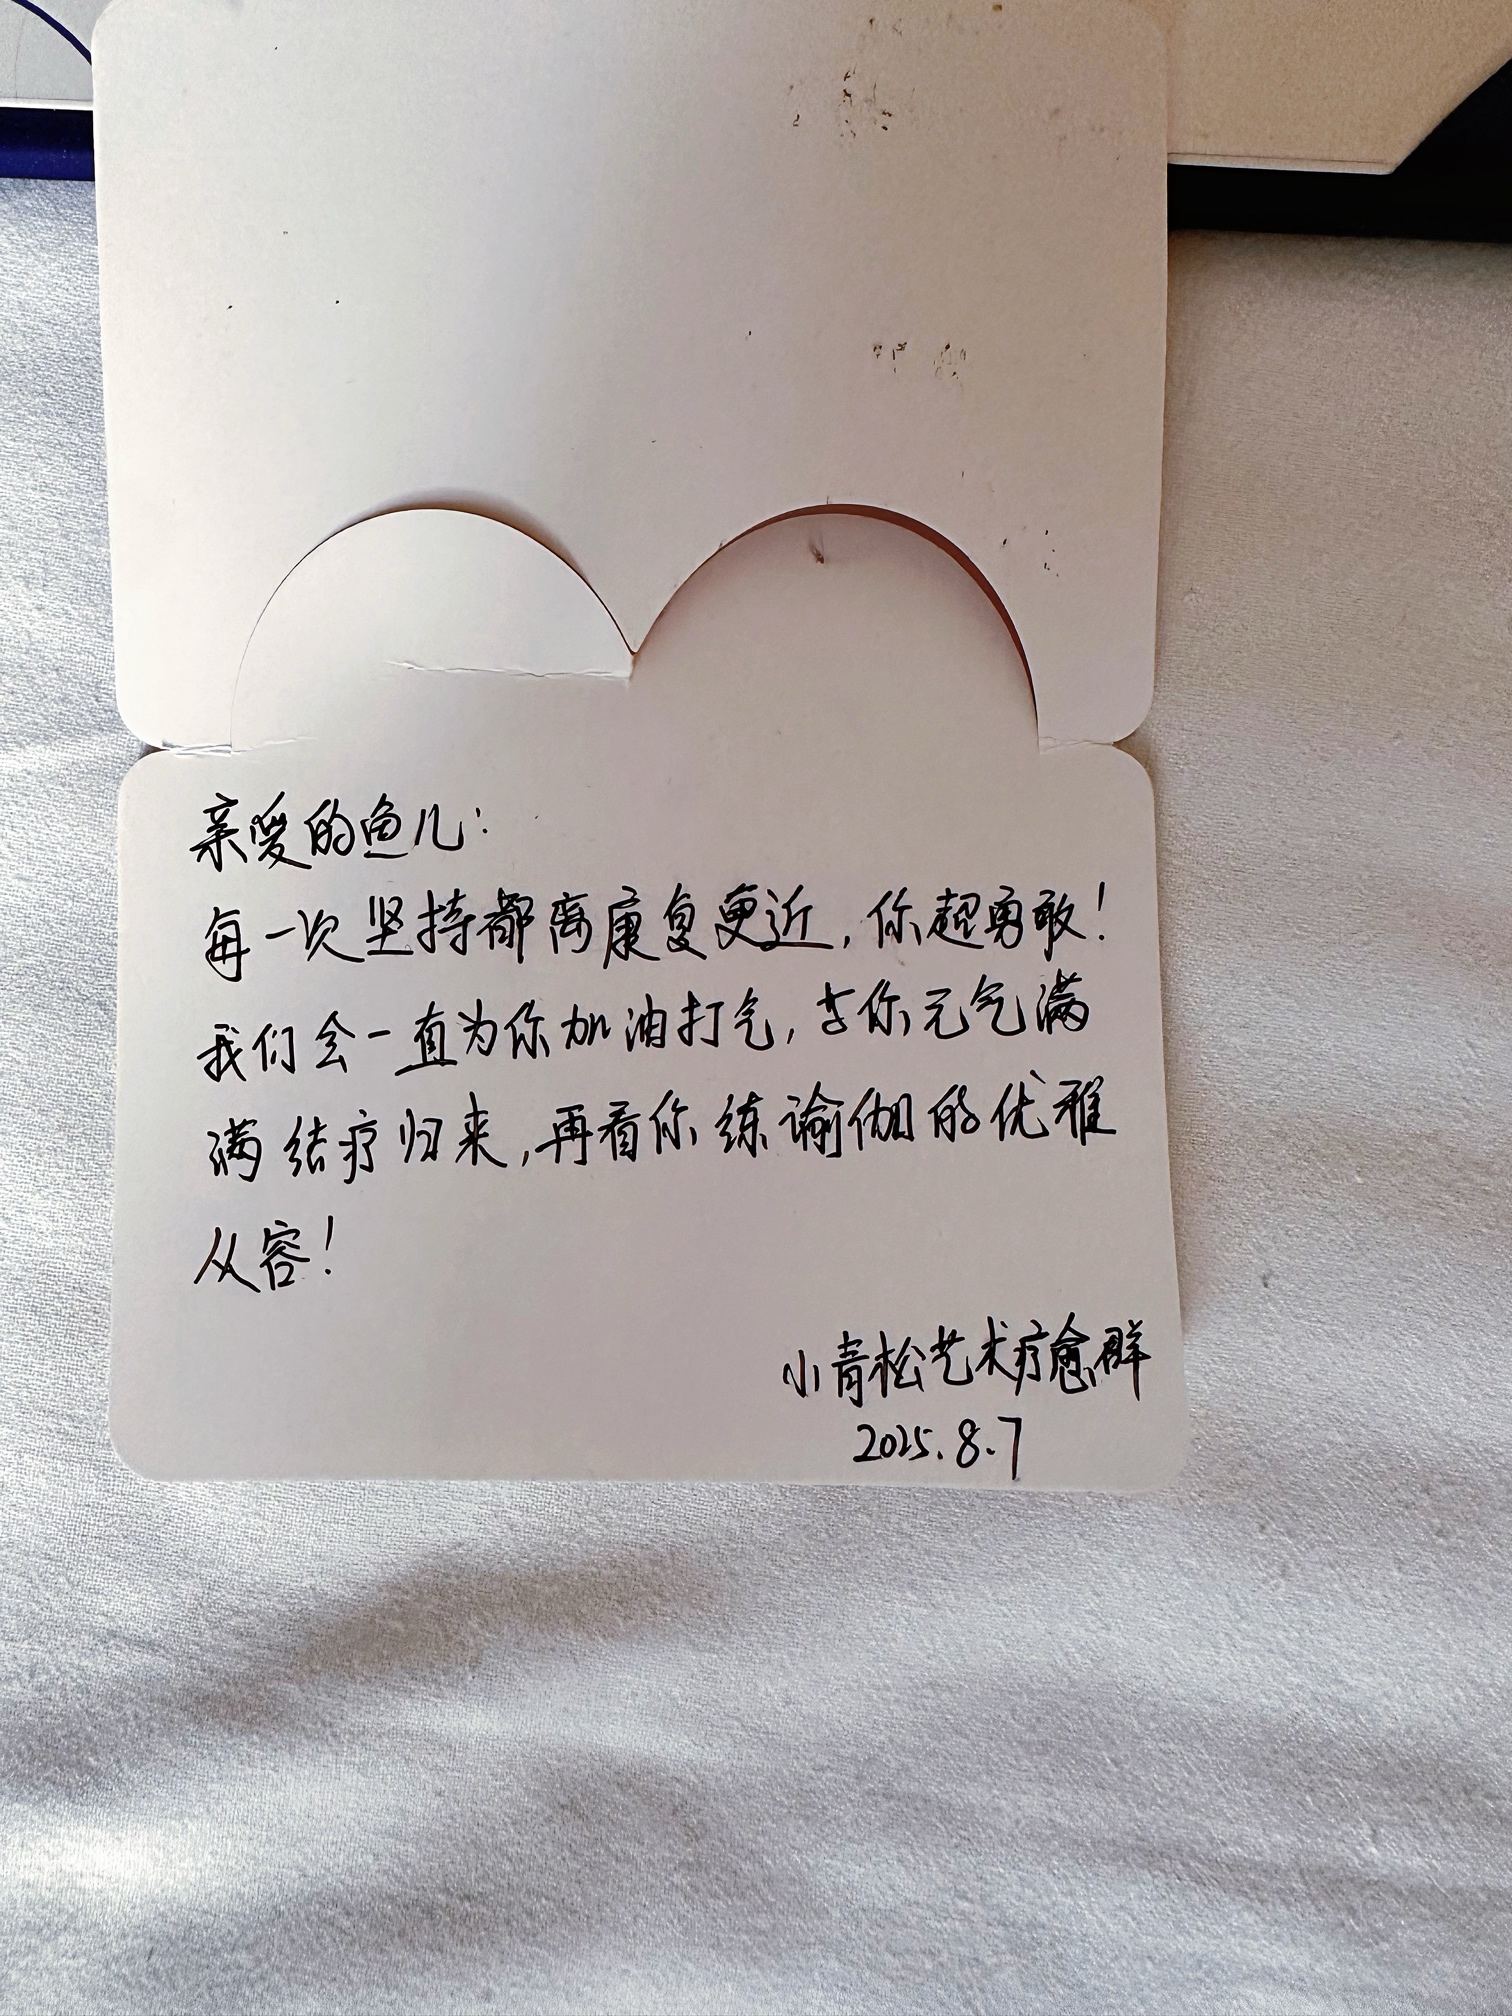 亲爱的鱼儿:
每一次坚持都离康复更近,你超勇敢!
我们会一直为你加油打气,等你元气满
满结疗归来,再看你练瑜伽的优雅
从容!
小青松艺术疗愈群
2025.8.7